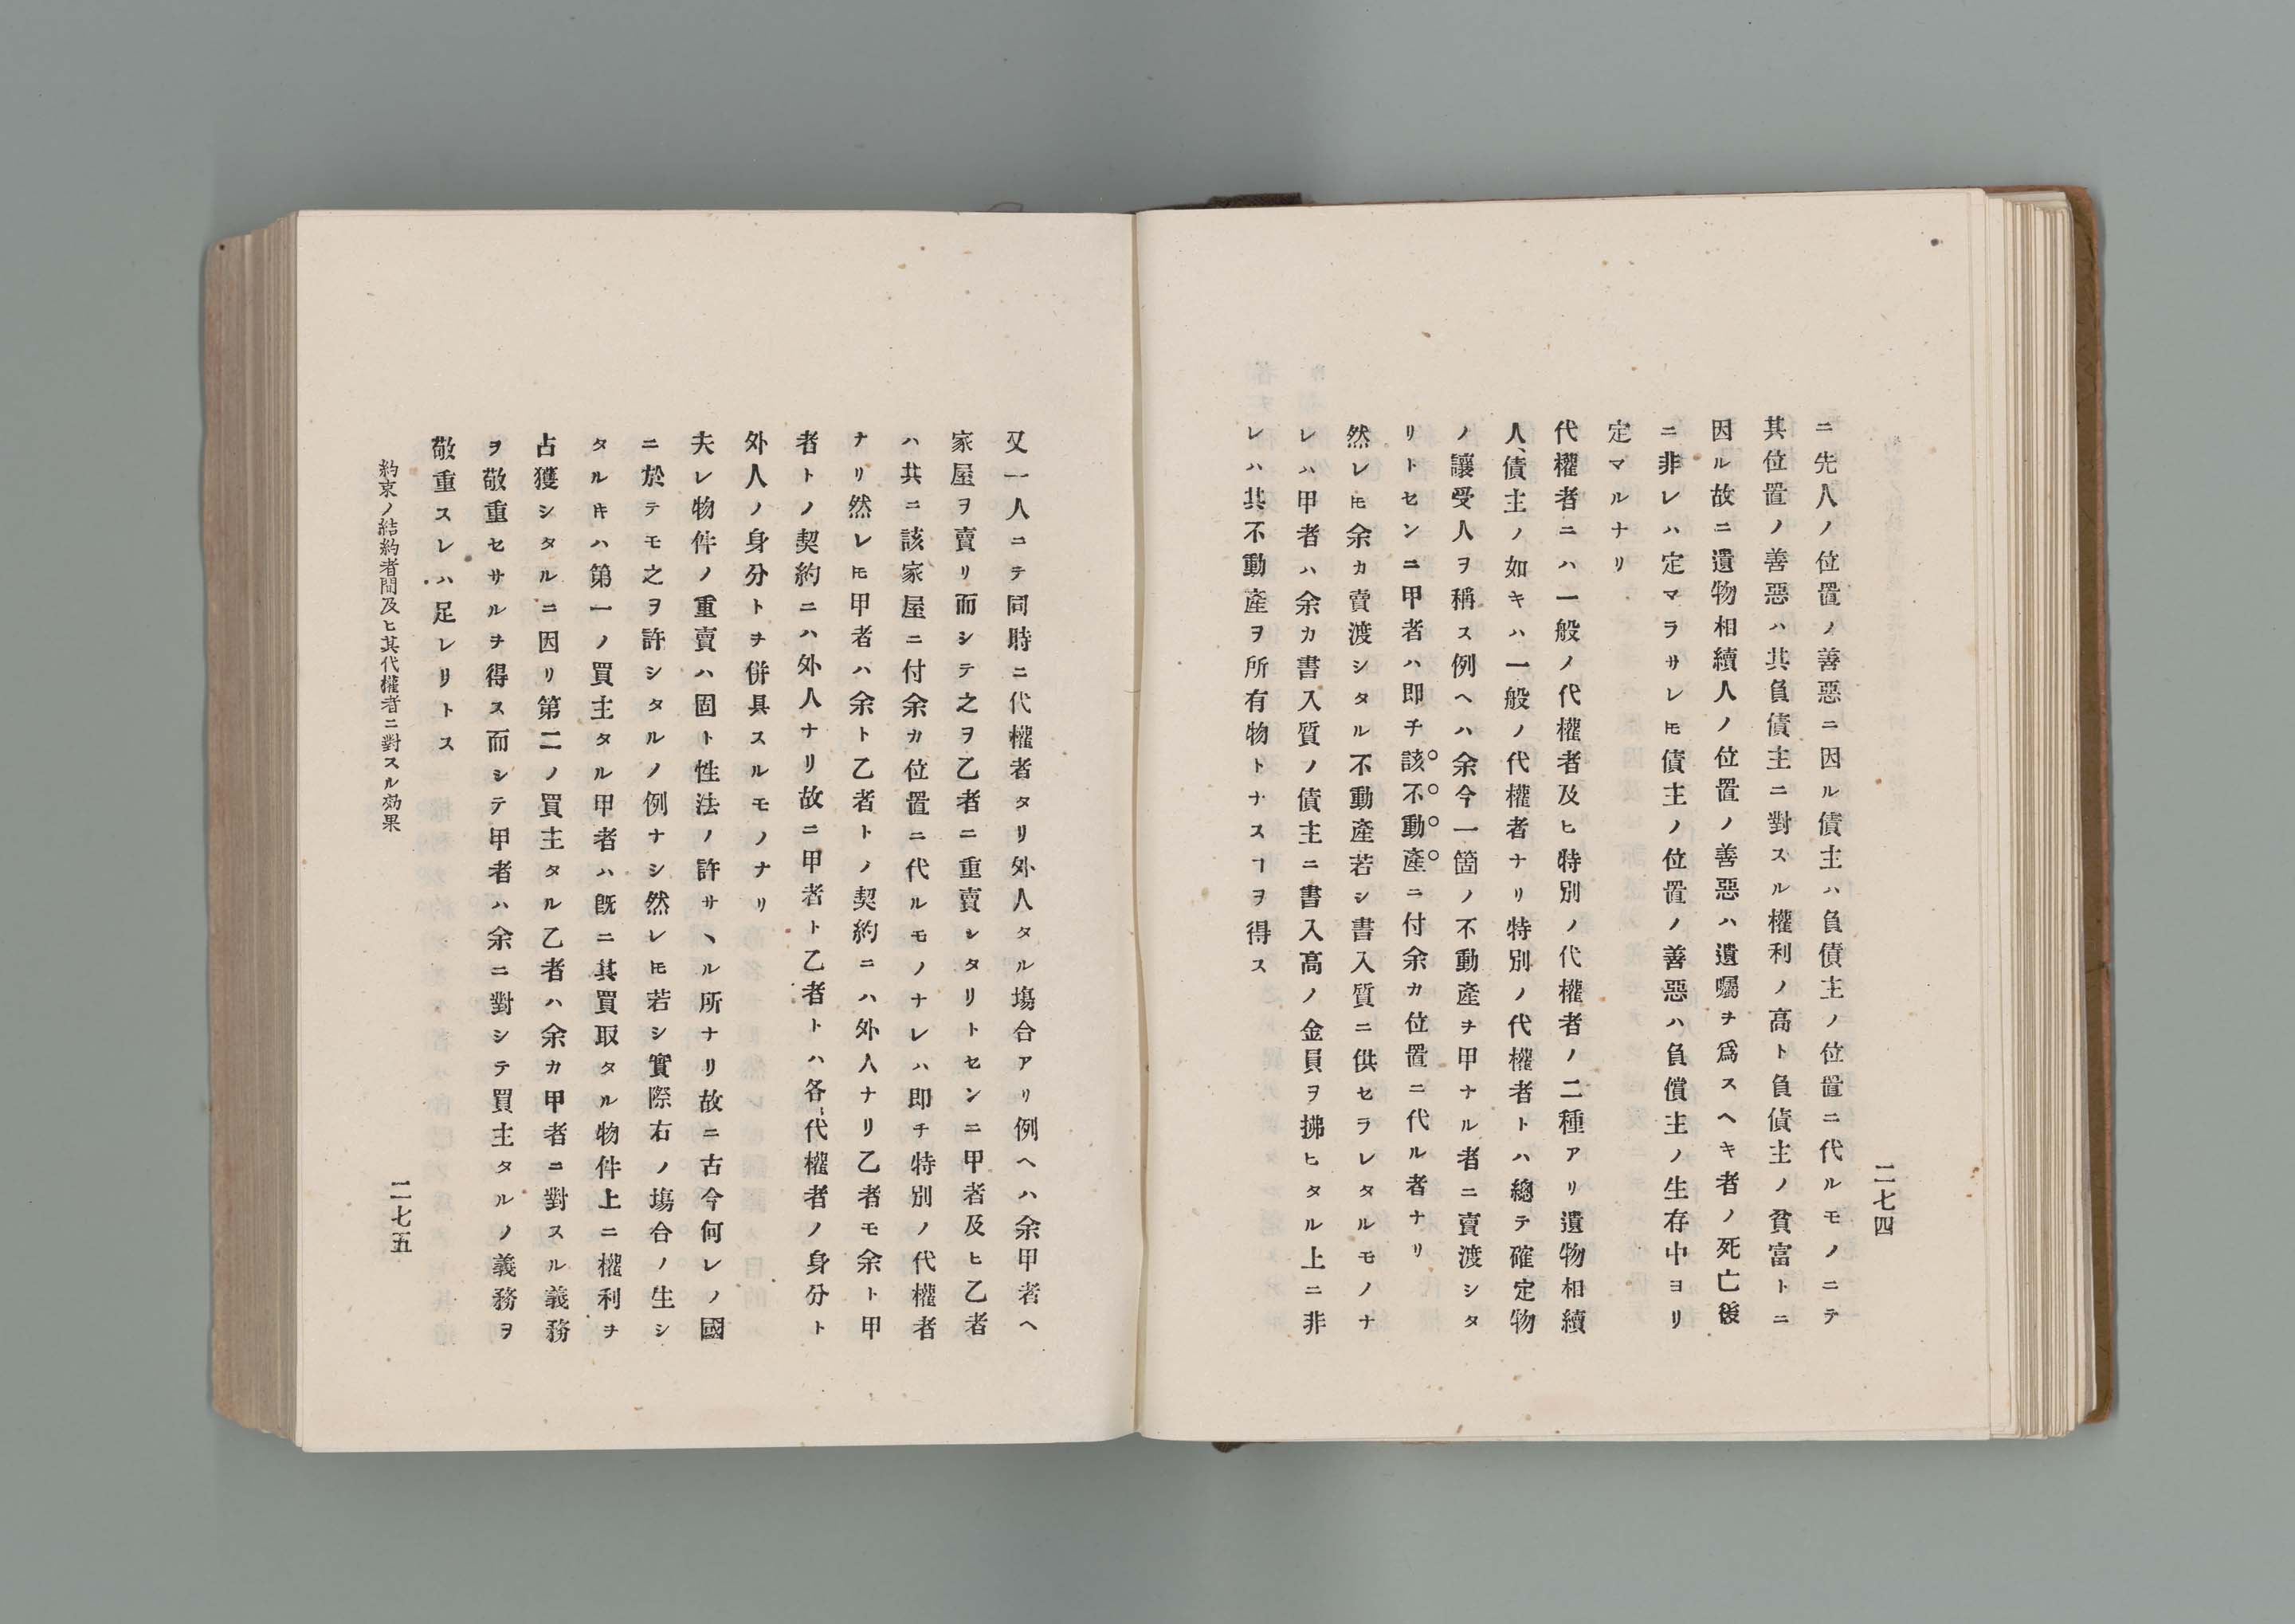 二七四
ニ先人ノ位置ノ善惡ニ因ル債主ハ負債主ノ位置ニ代ルモノニテ
其位置ノ善惡ハ其負債主ニ對スル權利ノ高ト負債主ノ貧富トニ
因ル故ニ遺物相續人ノ位置ノ善惡ハ遺囑ヲ爲スヘキ者ノ死亡後
ニ非レハ定マラサレ𪜈債主ノ位置ノ善惡ハ負償主ノ生存中ヨリ
定マルナリ
代權者ニハ一般ノ代權者及ヒ特別ノ代權者ノ二種アリ遺物相續
人、債主ノ如キハ一般ノ代權者ナリ特別ノ代權者トハ總テ確定物
ノ讓受人ヲ稱ス例ヘハ余今一箇ノ不動產ヲ甲ナル者ニ賣渡シタ
リトセンニ甲者ハ即チ該不動產ニ付余カ位置ニ代ル者ナリ
然レ𪜈余カ賣渡シタル不動產若シ書入質ニ供セラレタルモノナ
レハ甲者ハ余カ書入質ノ債主ニ書入高ノ金員ヲ拂ヒタル上ニ非
レハ其不動產ヲ所有物トナスヿヲ得ス
又一人ニテ同時ニ代權者タリ外人タル塲合アリ例ヘハ余甲者ヘ
家屋ヲ賣リ而シテ之ヲ乙者ニ重賣シタリトセンニ甲者及ヒ乙者
ハ共ニ該家屋ニ付余カ位置ニ代ルモノナレハ即チ特別ノ代權者
ナリ然レ𪜈甲者ハ余ト乙者トノ契約ニハ外人ナリ乙者モ余ト甲
者トノ契約ニハ外人ナリ故ニ甲者ト乙者トハ各〻代權者ノ身分ト
外人ノ身分トヲ併具スルモノナリ
夫レ物件ノ重賣ハ固ト性法ノ許サヽル所ナリ故ニ古今何レノ國
ニ於テモ之ヲ許シタルノ例ナシ然レ𪜈若シ實際右ノ塲合ノ生シ
タルキハ第一ノ買主タル甲者ハ旣ニ其買取タル物件上ニ權利ヲ
占獲シタルニ因リ第二ノ買主タル乙者ハ余カ甲者ニ對スル義務
ヲ敬重セサルヲ得ス而シテ甲者ハ余ニ對シテ買主タルノ義務ヲ
敬重スレハ足レリトス
約束ノ結約者間及ヒ其代權者ニ對スル効果
二七五